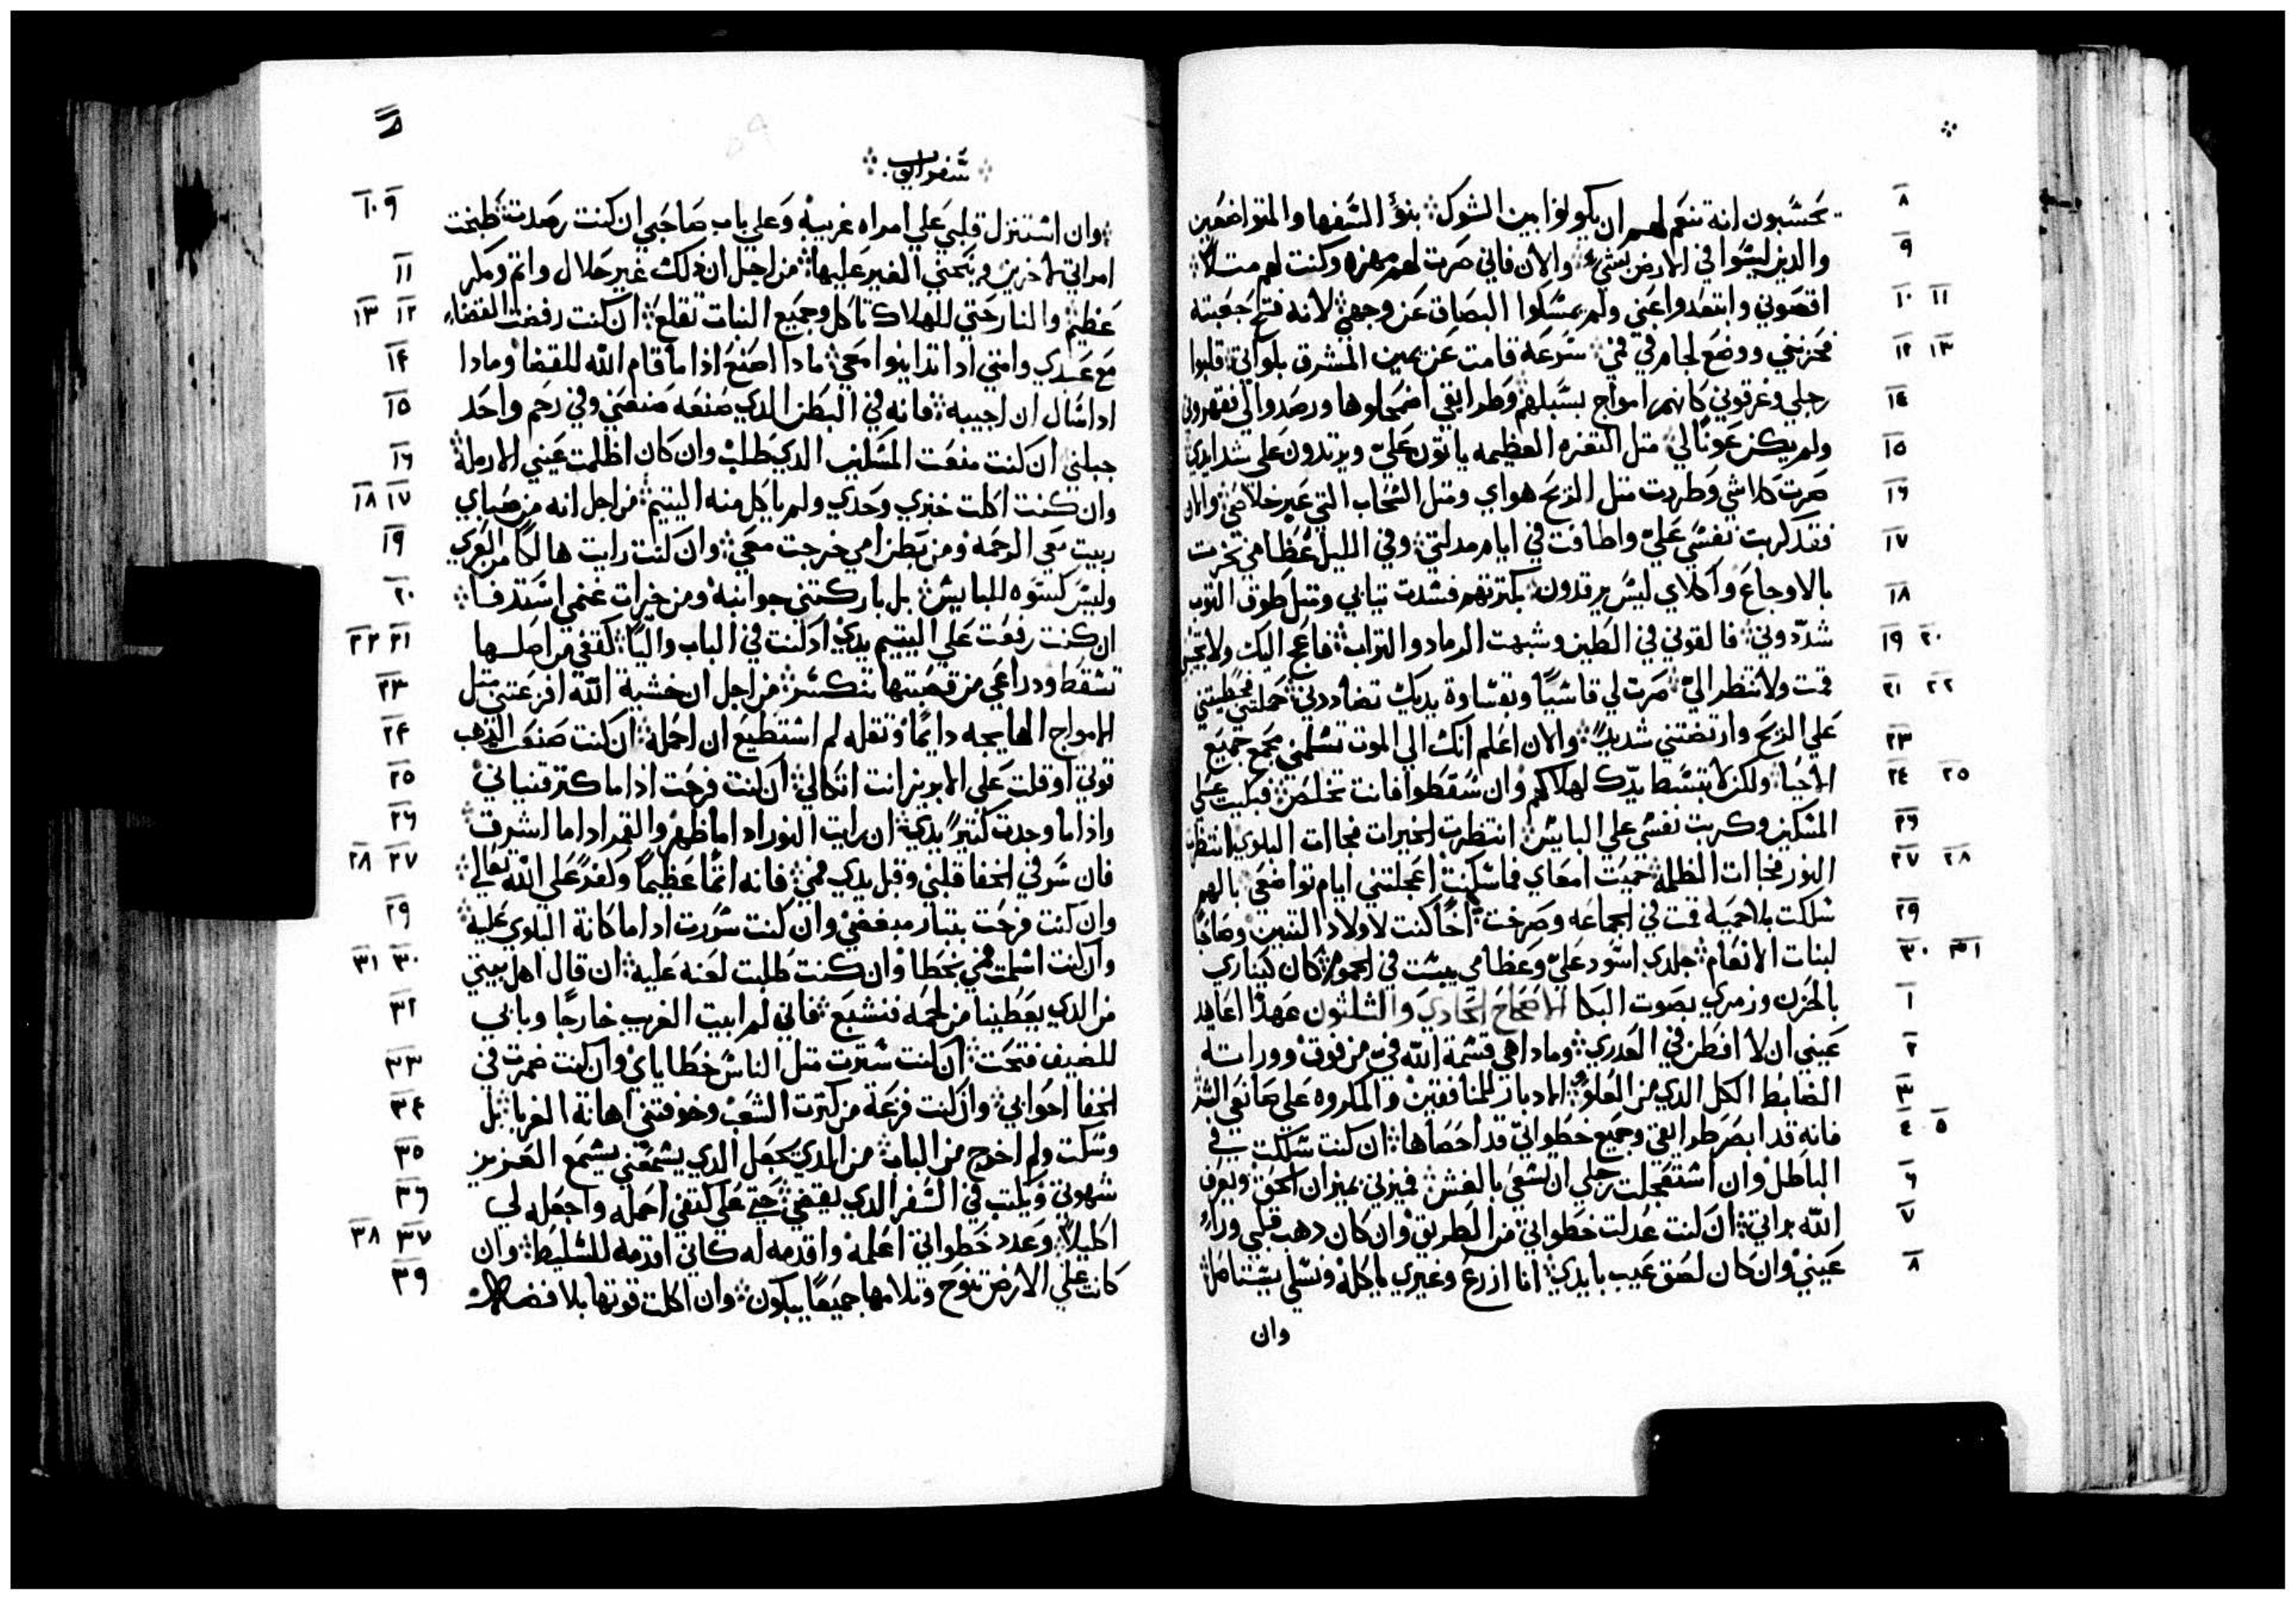 ٨ يحسبون انه تنعم لهم ان يكونوا بين الشوك ܀ بنوا السفها والمتواضعين
٩ والذين ليسوا في الارض بشي ܀ والان فاني صرت لهم مهزه وكنت لهم متلاً ܀
١٠ ١١ اقصوني وابتعدوا عني ولم يمسكوا البصاق عن وجهي ܀ لانه فتح جعبته
١٢ ١٣ فحزنني ووضع لجام في فمي ܀ سرعة قامت عن يمين المشرق بلواتي قلبوا
١٤ رجلي وغرقوني كانهم امواج بسبلهم وطرايقي اضمحلوها ورصدوا لي فقهروني
١٥ ولم يكن عونًا لي ܀ متل التغره العظيمه ياتون عليّ ويرتدون علي شدايدي
١٦ صرت كلاشي وطردت متل الريح هواي ومتل السحاب التي عبر خلاصي ܀ والان
١٧ فقد كربت نفسي عليّ واطافت في ايام مدلتي ܀ وفي الليل عظامي نخرت
١٨ بالاوجاع واكلاي ليس يرقدون ܀ بكترتهم فسدت تيابي ومتل طوق التوب
١٩ ٢٠ شدّدوني ܀ فالقوني في الطين وشبهت الرماد والتراب ܀ فاعج اليك ولا تجيبني
٢١ ٢٢ قمت ولا تنظر اليّ ܀ صرت لي قاسيًا وبقساوة يديك تضاددني ܀ حملتني
٢٣ علي الريح وارتضتني شديدًا ܀ والان اعلم انك الي الموت تسلمني مجمع جميع
٢٤ ٢٥ الاحيا ܀ ولكن لا تبسط يدّك لهلاكهم وان سقطوا فانت تخلص ܀ فبكيت علي
٢٦ المسكين وكربت نفسي علي البايس ܀ انتظرت الخيرات فجاات البلوي انتظرت
٢٧ ٢٨ النور فجاات الظلمه ܀ حميت امعاي فما سكنت اعجلتني ايام تواضعي بالهم
٢٩ سلكت بلا حميه قمت في الجماعه وصرخت ܀ اخًا كنت لاولاد التنين وصاحبًا
٣٠ ٣١ لبنات الانعام ܀ جلدي اسود عليّ وعظامي يبست في الحموم ܀ كان كيناري
١ بالحزن وزمري بصوت البكا الاصحاح الحادي والثلثون عهدًا اعاهد
٢ عيني ان لا افطن في العدري ܀ وماداهي قسمة الله فيّ من فوق ووراتة
٣ الضابط الكل الدي من العلو ܀ الادبار للمنافقين والمكروه علي صانعي الشر
٤ ٥ فانه قد ابصر طرايقي وجميع خطواتي قد احصاها ܀ ان كنت سلكت في
٦ الباطل وان استعجلت رجلي ان تسعي بالغش ܀ فميزني بميزان الحق ويعرف
٧ الله براتي ܀ ان كنت عدلت خطواتي من الطريق وان كان دهب قلبي وراء
٨ عيني وان كان لصق عيب بايدي ܀ انا ازرع وغيري ياكله ونسلي يستاصل ܀
وان
܀ سفر ايوب ܀
٩ ١٠ ܀ وان استنزل قلبي علي امراه غريبة وعلي باب صاحبي ان كنت رصدت ܀ طبخت
١١ امراتي لاخرين وينحني الغير عليها ܀ من اجل ان دلك غير حلال واتم ومكر
١٢ ١٣ عظيم ܀ والنار حتي للهلاك تاكل وجميع النبات تقلع ܀ ان كنت رفضت القضاء
١٤ مع عبدي وامتي ادا تداينوا معي ܀ مادا اصنع ادا ما قام الله للقضا ومادا
١٥ اداسال ان اجيبه ܀ فانه في البطن الدي صنعه صنعني وفي رحم واحد
١٦ جبلني ان كنت منعت المسكين الدي طلب وان كان اظلمت عيني الارملة
١٧ ١٨ وان كنت اكلت خبزي وحدي ولم ياكل منه اليتيم ܀ من اجل انه من صباي
١٩ ربيت معي الرحمه ومن بطن امي خرجت معي ܀ وان كنت رايت هالكًا من العري
٢٠ وليس كسوه للبايس ܀ بل باركتني جوانبه ومن خيرات غنمي استدفا ܀
٢١ ٢٢ ان كنت رفعت علي اليتيم يدي ادكنت في الباب واليًا ܀ كتفي من اصلها
٢٣ تسقط ودراعي من قصبتها تنكسر ܀ من اجل ان خشية الله افزعتني متل
٢٤ الامواج الهايجه دايمًا وتقله لم استطيع ان احمله ܀ ان كنت صنعت الدهب
٢٥ توتي او قلت علي الابريز انت اتكالي ܀ ان كنت فرحت ادا ما كتر قنياني
٢٦ وادا ما وجدت كتيرًا يدي ܀ ان رايت النور ادا ما ظهر والقمر ادا ما اشرف ܀
٢٧ ٢٨ فان سر في الخفا قلبي وقبل يدي فمي ܀ فانه اتمًا عظيمًا وكفرًا علي الله تعالي ܀
٢٩ وان كنت فرحت بتبار مبغضي وان كنت سررت ادا ما كانة البلوي علية ܀
٣٠ ٣١ وان كنت اسلمت فمي بخطا وان كنت طلبت لعنه علية ܀ ان قال اهل بيتي
٣٢ من الدي يعطينا من لحمه فنشبع ܀ فاني لم ابيت الغريب خارجًا وبابي
٣٣ للضيف فتحت ܀ ان كنت سترت متل الناس خطاياي وان كنت ضمرت في
٣٤ الخفا احوابي ܀ وان كنت فزعة من كترت الشعب وخوفتني اهانة الغربا ܀ بل
٣٥ وسكت ولم اخرج من الباب ܀ من الدي يجعل الدي يسمعني يسمع العزيز
٣٦ شهوتي ويكتب في السفر الدي يقضي ܀ حتي علي كتفي احمله واجعله لي
٣٧ ٣٨ اكليلاً ܀ وعدد خطواتي اعلمه واقدمه له كاني اقدمه للسليط ܀ وان
٣٩ كانت علي الارض تنوح وتلامها جميعًا يبكون ܀ وان اكلت قوتها بلا فضه